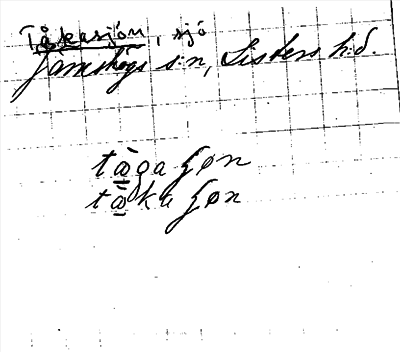 Tåkasjön, sjö
Jämshögs s:n, Listers h:d.
tå̀gaʃøn
tå̀kaʃøn